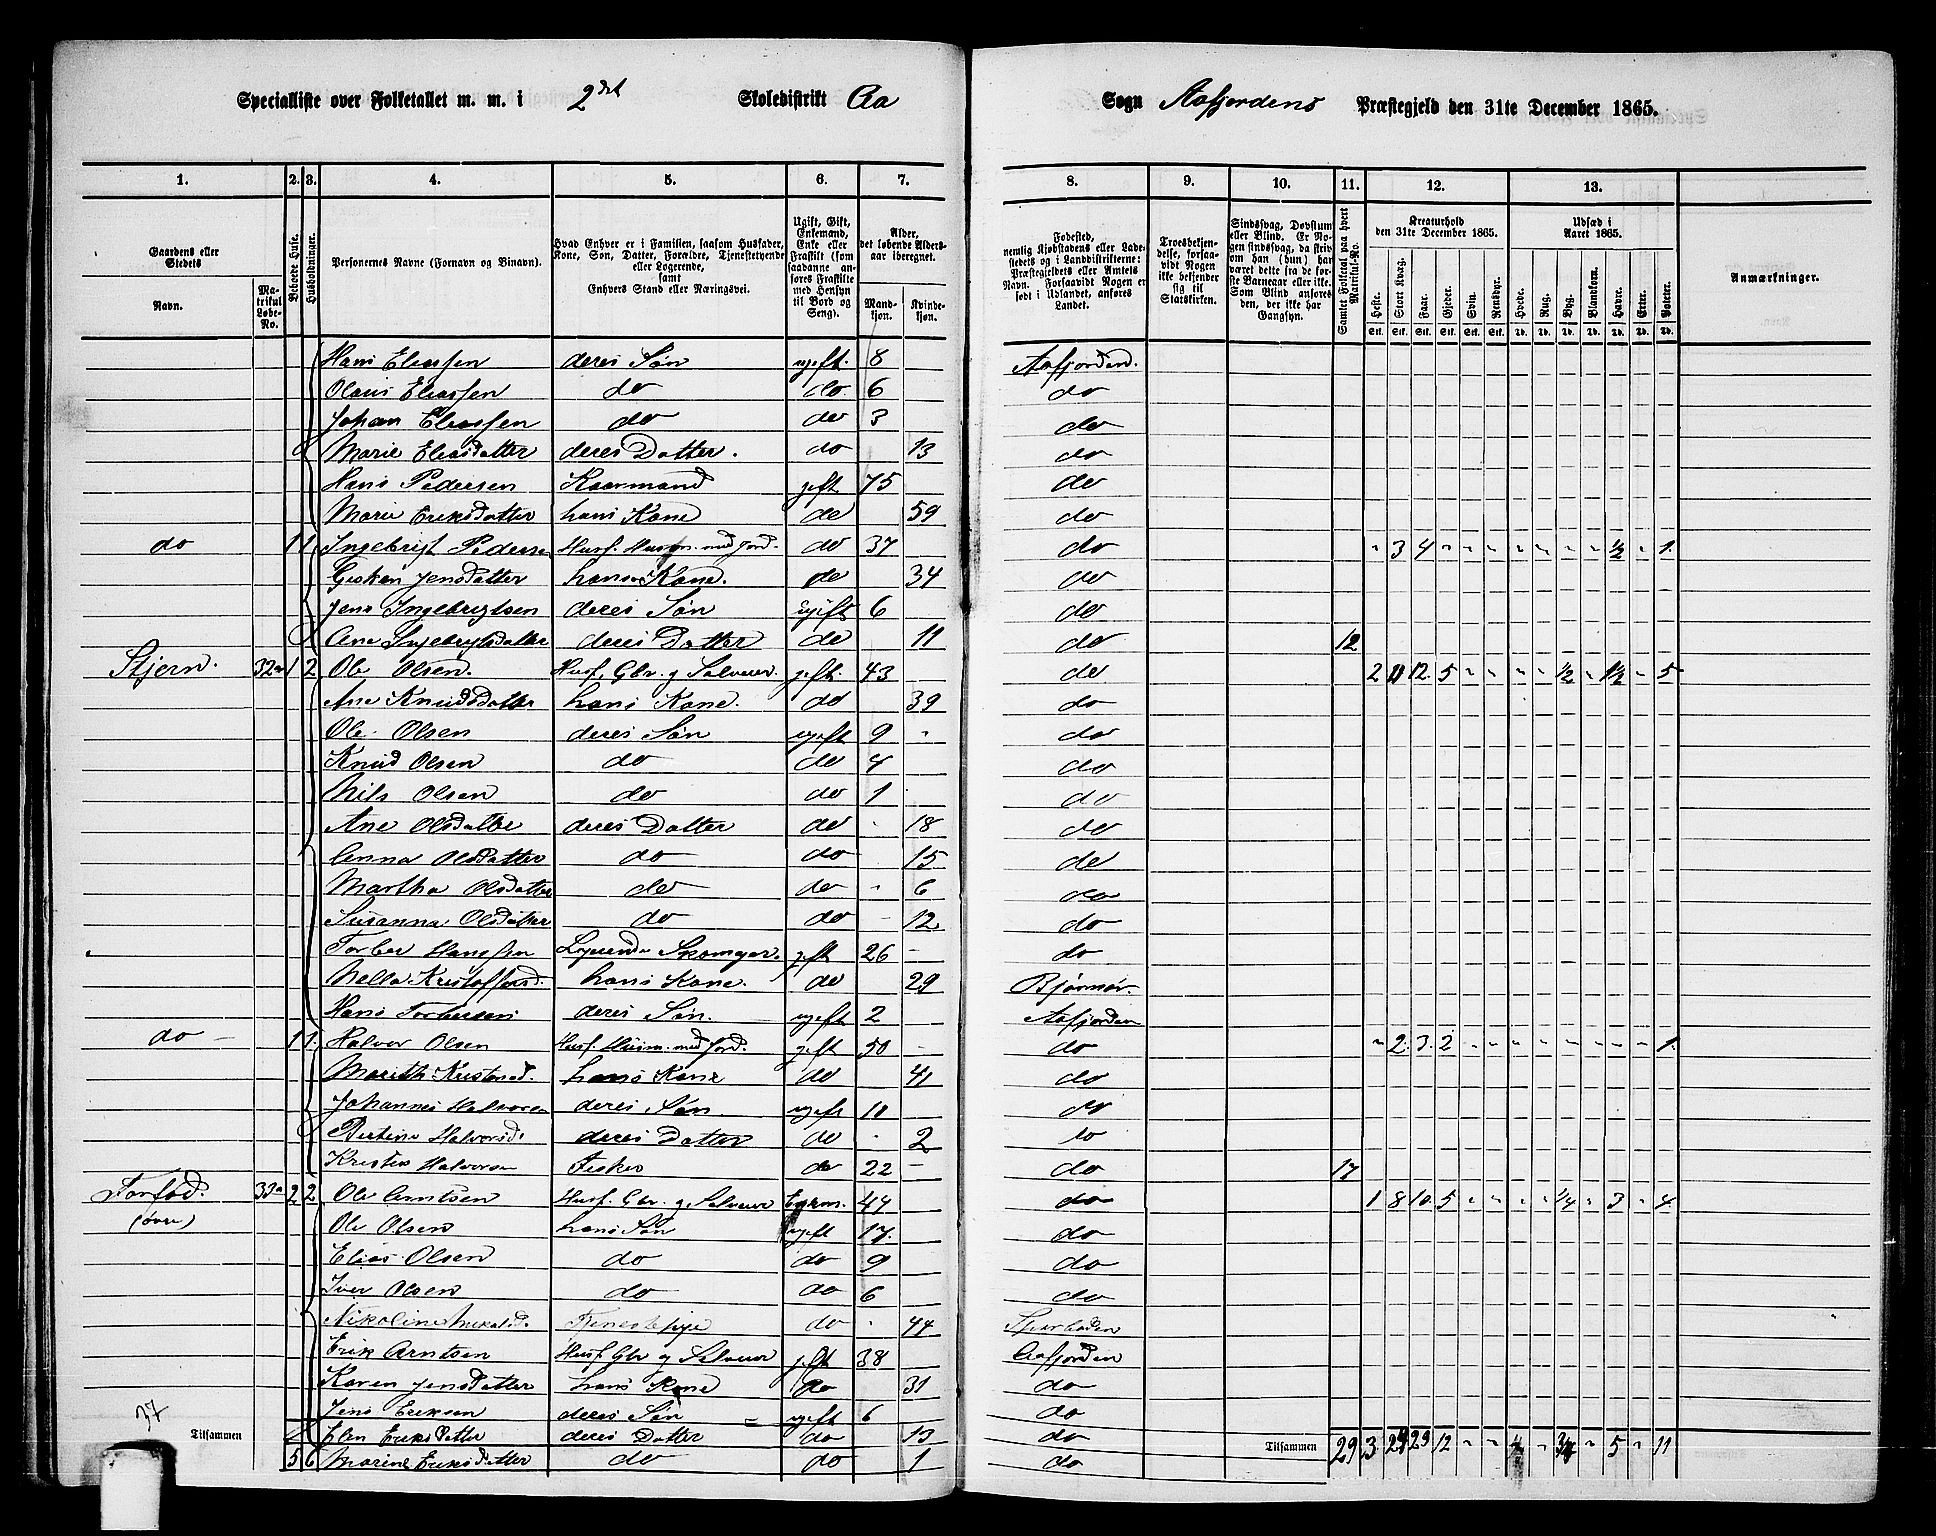 Specialliste over Folketallet m. m. i 2det Skoledistrikt Aa Sogn Aafjordens Præstegjeld den 31te December 1865.
1. 2. 3. 4. 5. 6. 7. 8. 9. 10. 11. 12. 13.
Gaardens eller Stedets Navn. Matrikul Løbe-No. Beboede Huse. Husholdninger. Personernes Navne (Fornavn og Binavn). Hvad Enhver er i Familien, saasom Husfader, Kone, Søn, Datter, Forældre, Tjenestetyende eller Logerende, samt Enhvers Stand eller Næringsvei. Ugift, Gift, Enkemand, Enke eller Fraskilt (som saadanne anføres Fraskilte med Hensyn til Bord og Seng). Alder, det løbende Aldersaar iberegnet. Mandkjøn. Kvindekjøn. Fødested, nemlig Kjøbstadens eller Ladestedets og i Landdistrikterne: Præstegjeldets eller Amtets Navn. Forsaavidt Nogen er født i Udlandet, anføres Landet. Troesbekjendelse, forsaavidt Nogen ikke bekjender sig til Statskirken. Sindssvag, Døvstum eller Blind. Er Nogen sindssvag, da skrives om han (hun) har været dette fra de første Barneaar eller ikke. Som Blind anføres den, der ikke har Gangsyn. Samlet Folketal paa hvert Matrikul-No. Kreaturhold den 31te December 1865. Heste. Stort Kvæg. Faar. Gjeder. Svin. Rensdyr. Udsæd i Aaret 1865. Hvede. Rug. Byg. Blandkorn. Havre. Erter. Poteter. Anmærkninger.
Hans Eliassen deres Søn ugift. 8 Aafjorden.
Olaus Eliassen do do. 6 do
Johan Eliassen do do 3 do
Marie Eliasdatter deres Datter. do 13 do
Hans Pedersen Kaarmand gift 75 do
Marie Eriksdatter hans Kone do 59 do
do 1 1 Ingebrigt Pedersen Husf. Husm. med Jord. do 37 do " 3 4 " " " " " " " ½ " 1.
Gesken Jensdatter hans Kone. do 34 do
Jens Ingebrigtsen deres Søn ugift 6 do
Ane Ingebrigtsdatter deres Datter do 11 do 12
Stjern. 32a 1 2 Ole Olsen. Husf. Gbr. og Selveier. gift. 43 do 2 11 12. 5 " " " " ½ " 1½ " 5
Ane Knudsdatter hans Kone. do 39 do
Ole Olsen deres Søn ugift 9 " do
Knud Olsen do do 4 do
Nils Olsen do do 1 do
Ane Olsdatter deres Datter do " 18 do
Anna Olsdatter do do 15 do
Martha Olsdatter do do " 6 do
Susanna Olsdatter do do 12 do
Torber Hanssen Logerende Skomager. gift 26 do
Nella Kristoffersd. hans Kone. do 29 Bjørnør.
Hans Torbersen deres Søn. ugift 2 Aafjorden
do 1 1. Halvor Olsen Husf. Husm. med Jord. gift 50 do " 2. 3. 2 " " " " " " " " 1.
Marith Kristensd. hans Kone do 41 do
Johannes Halvorsen deres Søn. ugift 10 do
Bertine Halvorsd. deres Datter do " 2 do
Kristen Halvorsen Fisker do 22 do 17
Forfod. (øvre) 33a 2 2 Ole Arntsen Husf. Gbr. og Selveier Enkem. 44 do 1 8 10. 5 " " " " ¼ " 3 " 4.
Ole Olsen hans Søn ugift 17. do
Elias Olsen do do 9 do
Iver Olsen do do 6 do
Nikoline Tjenestepige do " 44
Erik Arntsen Husf. Gbr og Selveier gift 38 Aafjorden
Karen Jensdatter hans Kone do 31 do
Jens Eriksen deres Søn ugift 6 do
37 Elen Eriksdatter deres Datter do 13 do
Tilsammen 5 6 Marine Eriksdatter do do 1 do Tilsammen 29 3 24 29 12 " " " ¾ " 5 " 11